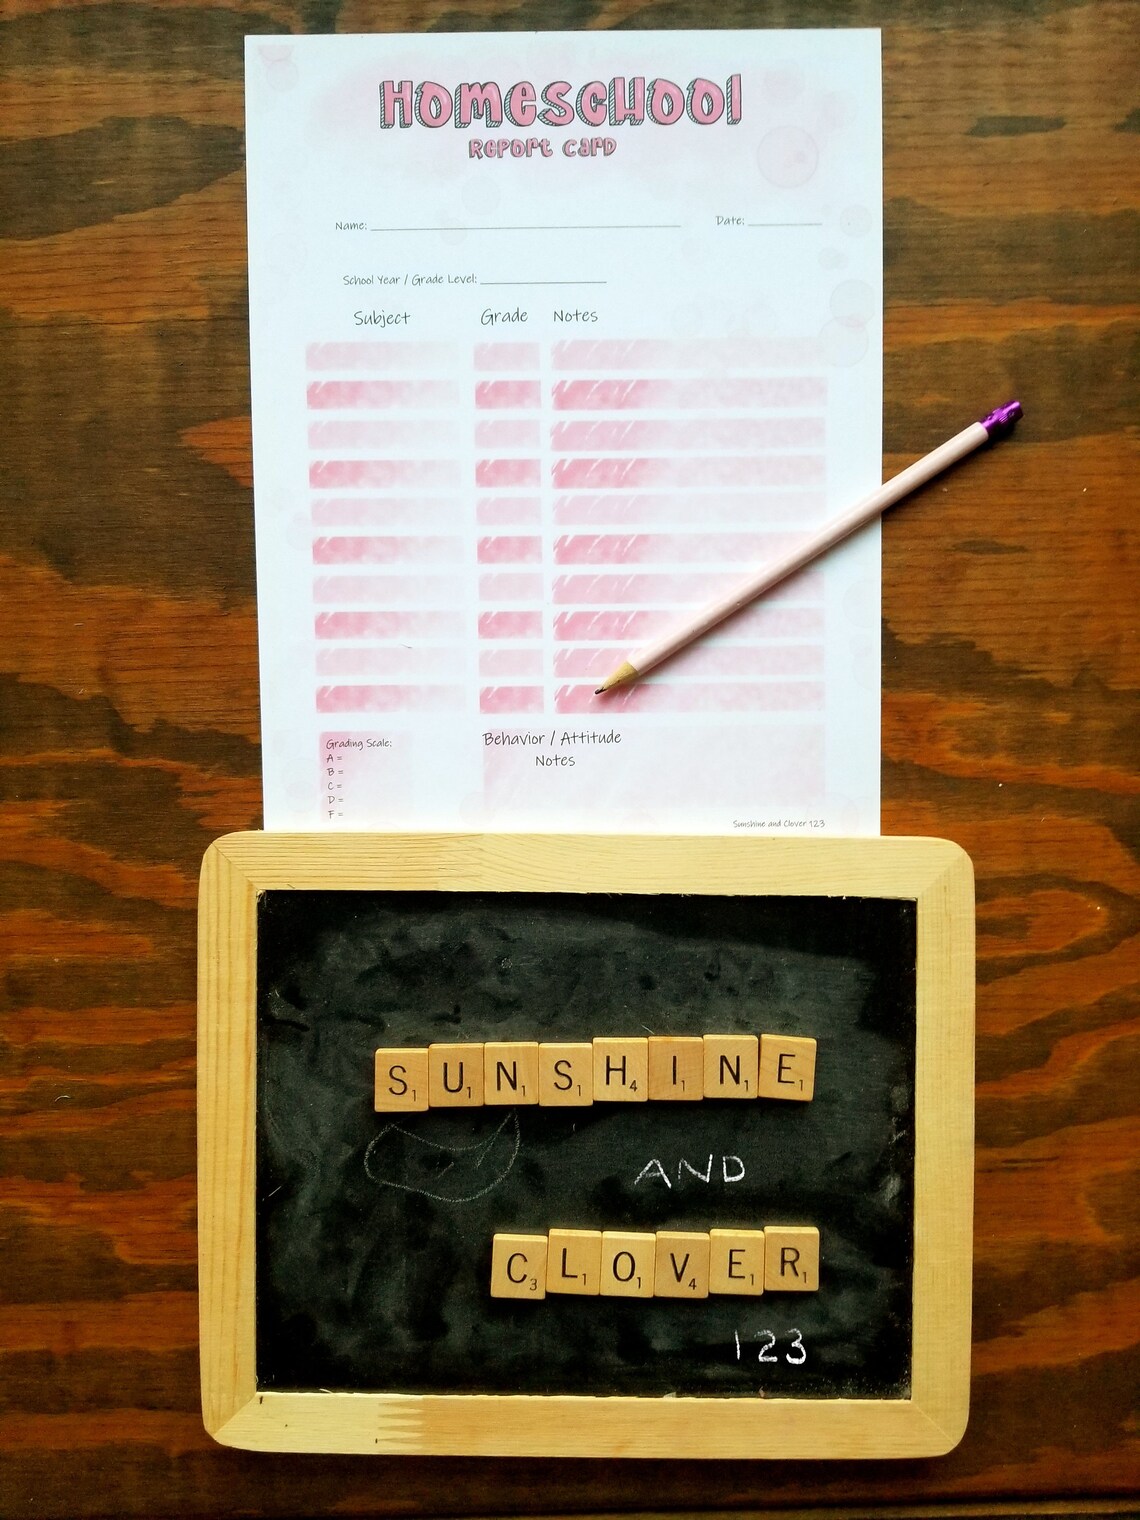 HOMESCHOOL
REPORT CARD
Name: Date:
School Year / Grade Level:
Subject Grade Notes
Grading Scale:
A =
B =
C =
D =
F =
Behavior / Attitude
Notes
Sunshine and Clover 123
S1 U1 N1 S1 H4 I1 N1 E1
AND
C3 L1 O1 V4 E1 R1
123